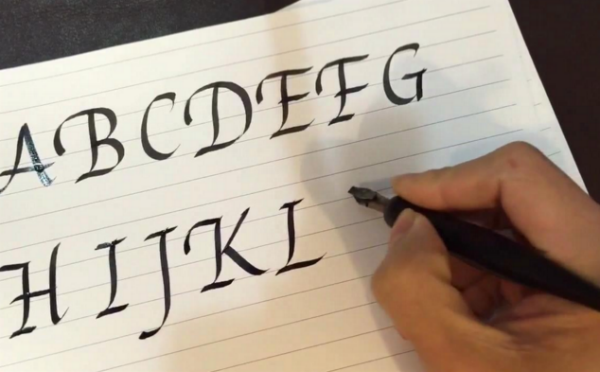 ABCDEFG
HIJKL